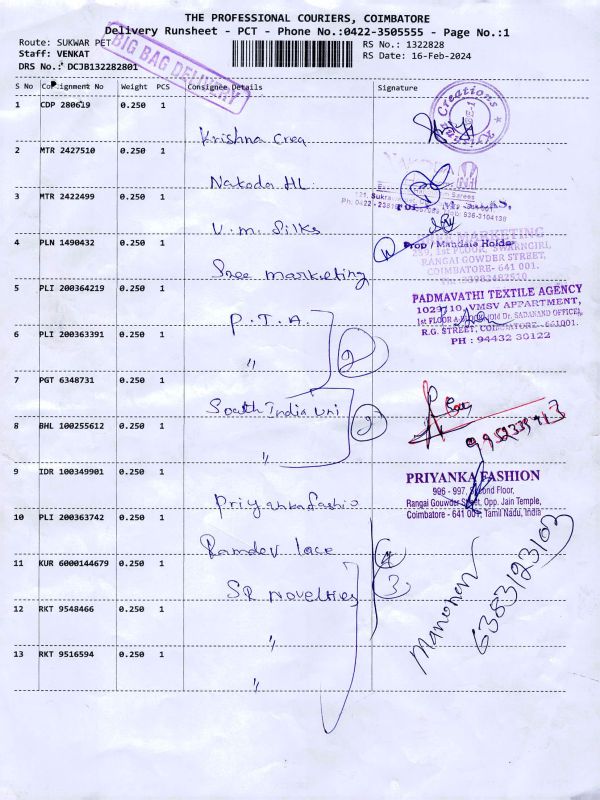 THE PROFESSIONAL COURIERS, COIMBATORE
Delivery Runsheet - PCT - Phone No.:0422-3505555 - Page No.:1
Route: SUKWAR PET
RS No.: 1322828
Staff: VENKAT
RS Date: 16-Feb-2024
DRS No.: DCJB132282801
BIG BAG DELIVERY
S No Consignment No Weight PCS Consignee Details Signature
1 CDP 280619 0.250 1 Krishna Crea
Creations
2 MTR 2427510 0.250 1 Nakoda HL
3 MTR 2422499 0.250 1 V.M. Silks
Sarees
121, Sukra
Ph: 0422 - 2381
936-3104138
Prop / Mandate Holder
4 PLN 1490432 0.250 1 Sree marketing
MARKETING
289, 1st FLOOR, SWARNGIRI,
RANGAI GOWDER STREET,
COIMBATORE- 641 001.
5 PLI 200364219 0.250 1 P.T.A.
PADMAVATHI TEXTILE AGENCY
1029/10, VMSV APPARTMENT,
R.G. STREET, COIMBATORE - 661001.
PH : 94432 30122
6 PLI 200363391 0.250 1 "
2
7 PGT 6348731 0.250 1 South India Uni
8 BHL 100255612 0.250 1 "
2
9 IDR 100349901 0.250 1 Priyanka fashio
PRIYANKA FASHION
996 - 997, Second Floor,
Rangai Gouwder Street, Opp. Jain Temple,
Coimbatore - 641 001, Tamil Nadu, India
10 PLI 200363742 0.250 1 Ramdev lace
11 KUR 6000144679 0.250 1 SR Novelties
3
12 RKT 9548466 0.250 1 "
13 RKT 9516594 0.250 1 "
Manohar
6383123103